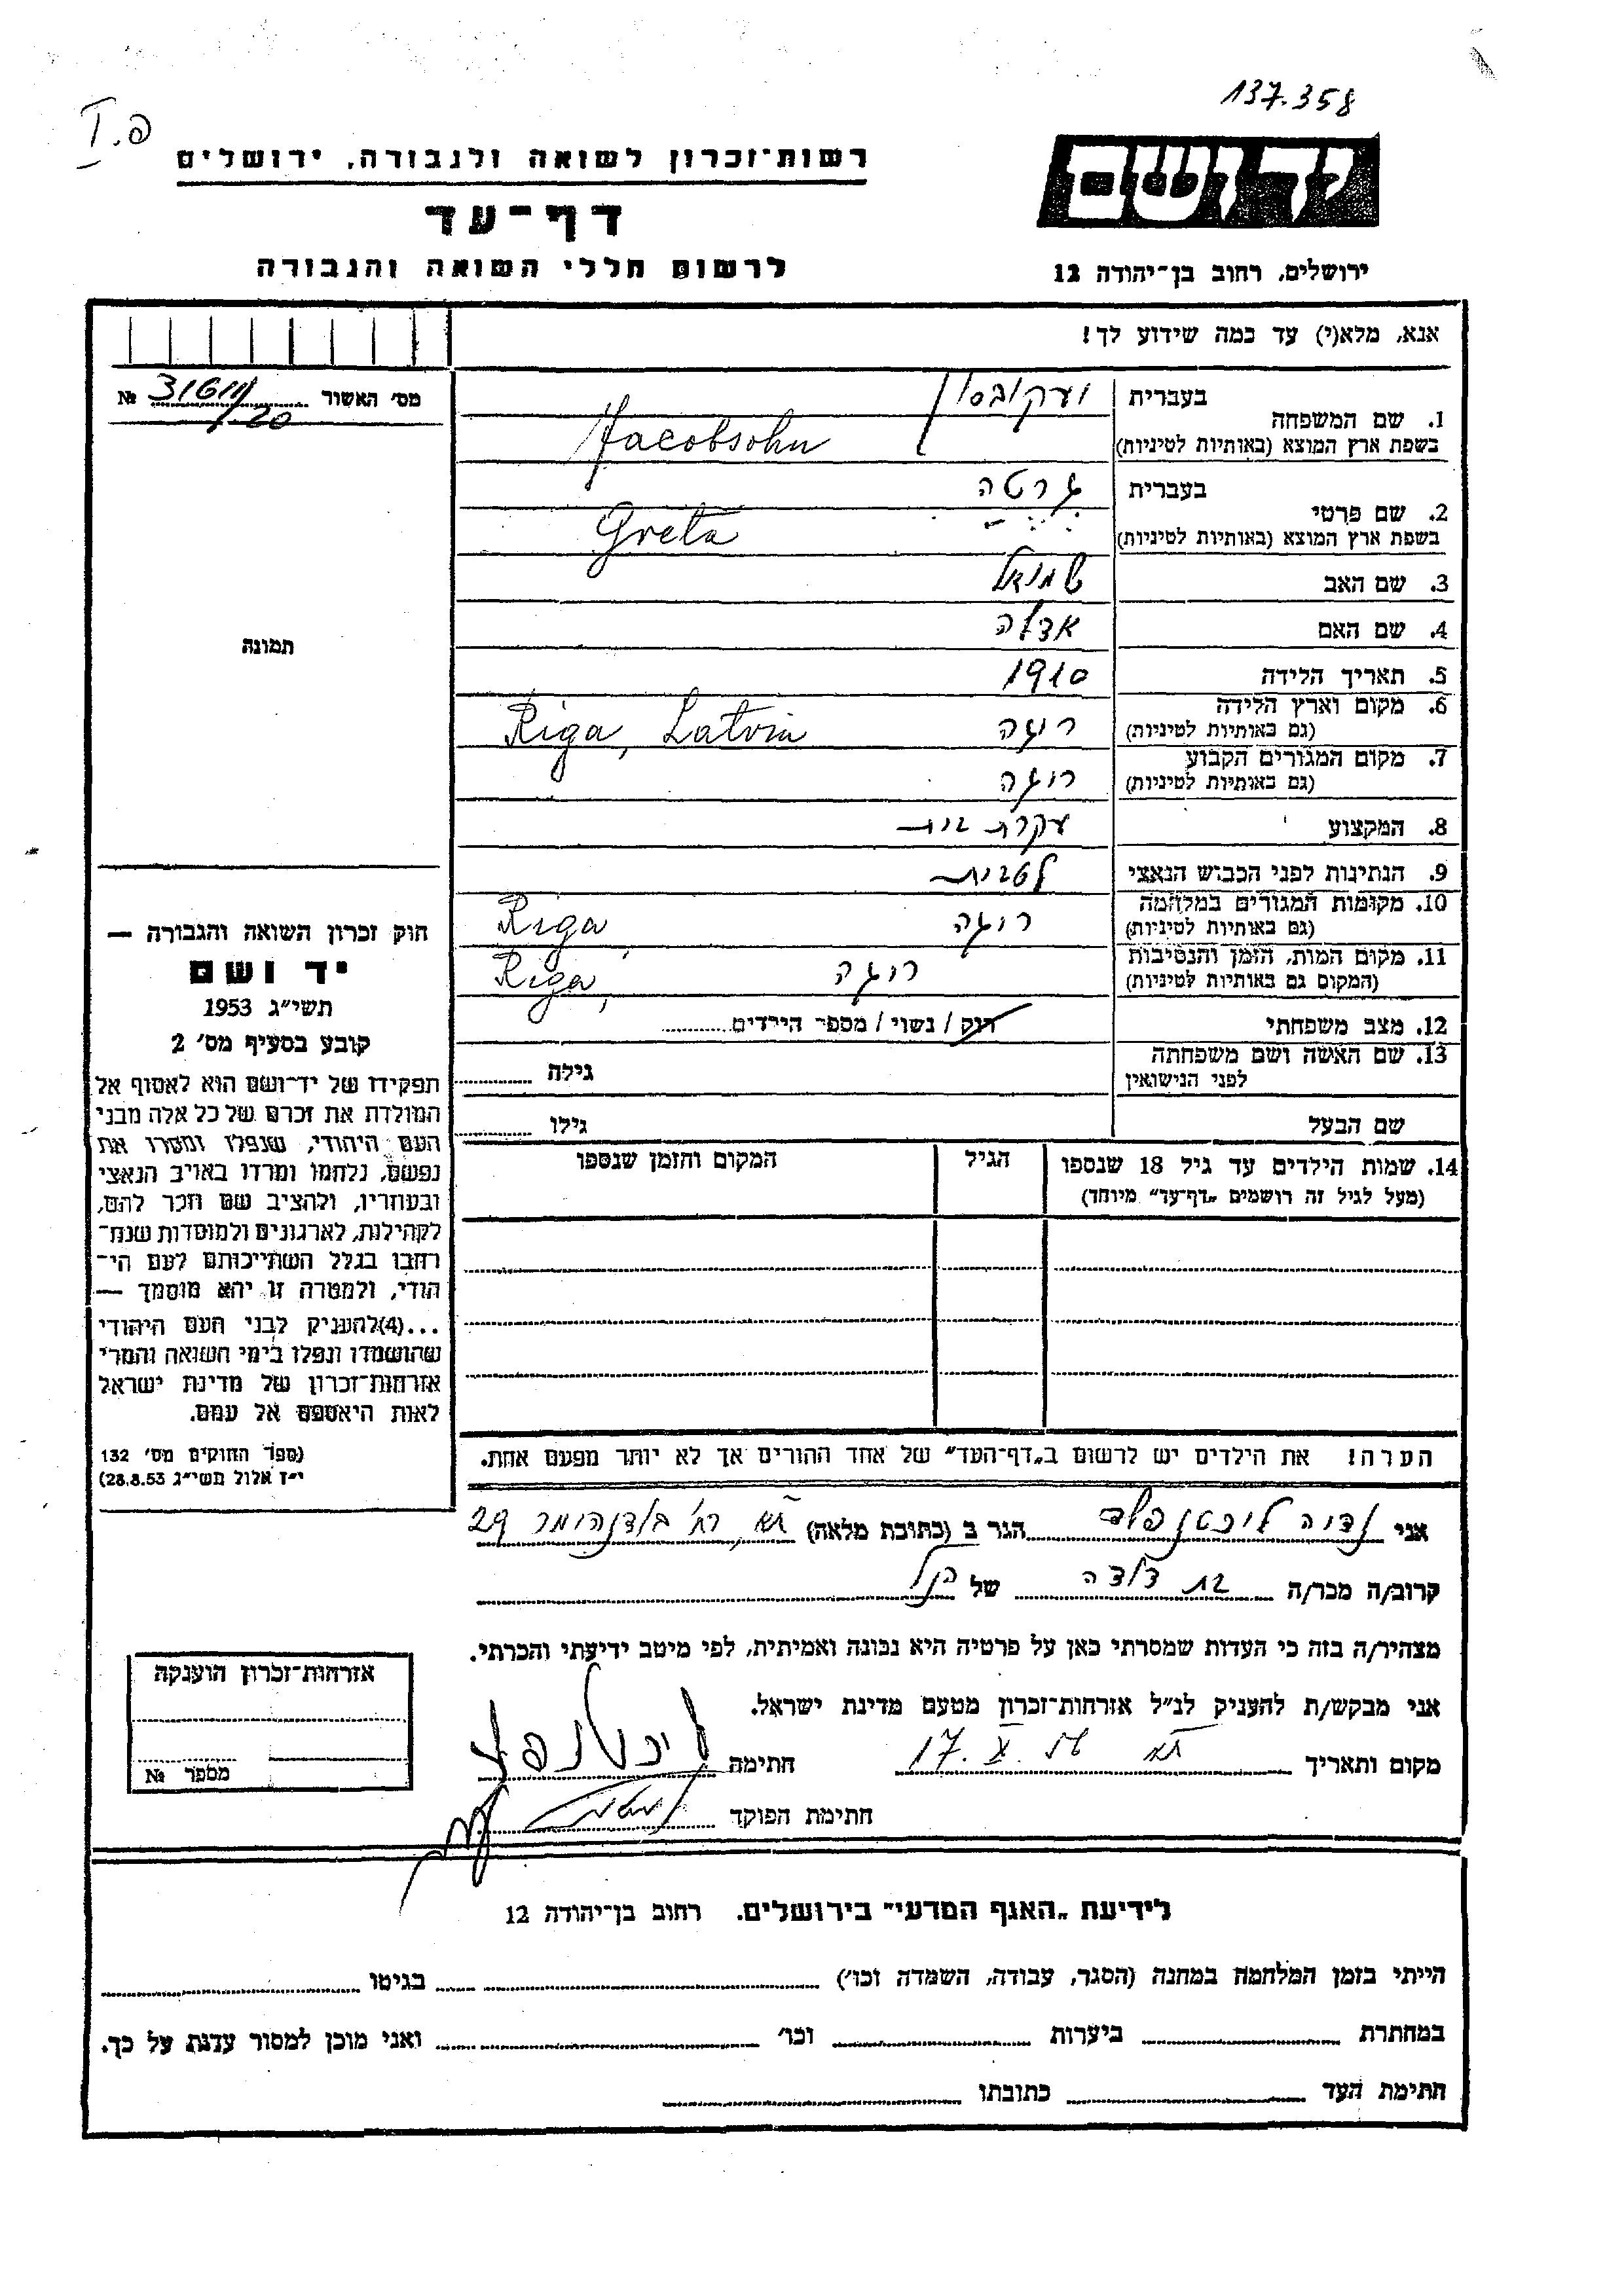 137.358
I.פ
יד ושם
רשות־זכרון לשואה ולגבורה, ירושלים
דף־עד
לרשום חללי השואה והגבורה
ירושלים, רחוב בן־יהודה 12
אנא, מלא(י) עד כמה שידוע לך!
מס׳ האשור 31611/20 №
1. שם המשפחה בעברית יעקובסון
בשפת ארץ המוצא (באותיות לטיניות) Jacobsohn
2. שם פרטי בעברית גרטה
בשפת ארץ המוצא (באותיות לטיניות) Greta
3. שם האב שמואל
4. שם האם אדלה
5. תאריך הלידה 1910
6. מקום וארץ הלידה (גם באותיות לטיניות) ריגה Riga, Latvia
7. מקום המגורים הקבוע (גם באותיות לטיניות) ריגה
8. המקצוע עקרת בית
9. הנתינות לפני הכבוש הנאצי לטבית
10. מקומות המגורים במלחמה (גם באותיות לטיניות) ריגה Riga,
11. מקום המות, הזמן והנסיבות (המקום גם באותיות לטיניות) ריגה Riga,
12. מצב משפחתי רוק / נשוי / מספר הילדים
13. שם האשה ושם משפחתה לפני הנישואין גילה
שם הבעל גילו
14. שמות הילדים עד גיל 18 שנספו הגיל המקום והזמן שנספו
(מעל לגיל זה רושמים „דף־עד״ מיוחד)
הערה! את הילדים יש לרשום ב„דף־העד״ של אחד ההורים אך לא יותר מפעם אחת.
תמונה
חוק זכרון השואה והגבורה —
יד ושם
תשי״ג 1953
קובע בסעיף מס׳ 2
תפקידו של יד־ושם הוא לאסוף אל
המולדת את זכרם של כל אלה מבני
העם היהודי, שנפלו ומסרו את
נפשם, נלחמו ומרדו באויב הנאצי
ובעוזריו, ולהציב שם וזכר להם,
לקהילות, לארגונים ולמוסדות שנח־
רחבו בגלל השתייכותם לעם הי־
הודי, ולמטרה זו יהא מוסמך —
...(4)להעניק לבני העם היהודי
שהושמדו ונפלו בימי השואה והמרי
אזרחות־זכרון של מדינת ישראל
לאות היאספם אל עמם.
(ספר החוקים מס׳ 132
י״ז אלול תשי״ג 28.8.53)
אני נדיה ליכטנפלד הגר ב (כתובת מלאה) ת״א, רח׳ 29
קרוב/ה מכר/ה בת דודה של הנ״ל
מצהיר/ה בזה כי העדות שמסרתי כאן על פרטיה היא נכונה ואמיתית, לפי מיטב ידיעתי והכרתי.
אני מבקש/ת להעניק לנ״ל אזרחות־זכרון מטעם מדינת ישראל.
מקום ותאריך ת״א 17. X חתימה
חתימת הפוקד
אזרחות־זכרון הוענקה
מספר №
לידיעת „האגף המדעי״ בירושלים. רחוב בן־יהודה 12
הייתי בזמן המלחמה במחנה (הסגר, עבודה, השמדה וכו׳) בגיטו
במחתרת ביערות וכו׳ ואני מוכן למסור עדות על כך.
חתימת העד כתובתו